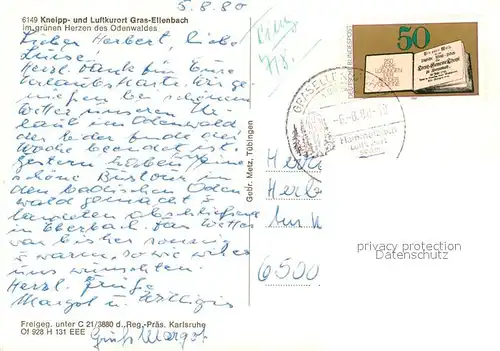 5.8.80
6149 Kneipp- und Luftkurort Gras-Ellenbach
im grünen Herzen des Odenwaldes
Lieber Herbert, liebe
Luise,
Herzl. Dank für Eure
Urlaubskarte. Wir ge-
nießen bei schönem
Wetter unseren Ur-
laub im Odenwald
der leider Ende der
Woche beendet ist.
Gestern haben eine
schöne Bustour in
den badischen Oden
wald gemacht u.
landeten abschließend
in Eberbach. Das Wetter
war bisher sonnig
u warm, so wie wir es
uns wünschten.
Herzl. Grüße
Margot u. Willigis
Gruß Margot
Freigeg. unter C 21/3880 d. Reg.-Präs. Karlsruhe
Of 928 H 131 EEE
Gebr. Metz, Tübingen
50
DEUTSCHE BUNDESPOST
GRASELLENBACH
-6.-8.80-12
Herr
Herb
6500
privacy protection
Datenschutz